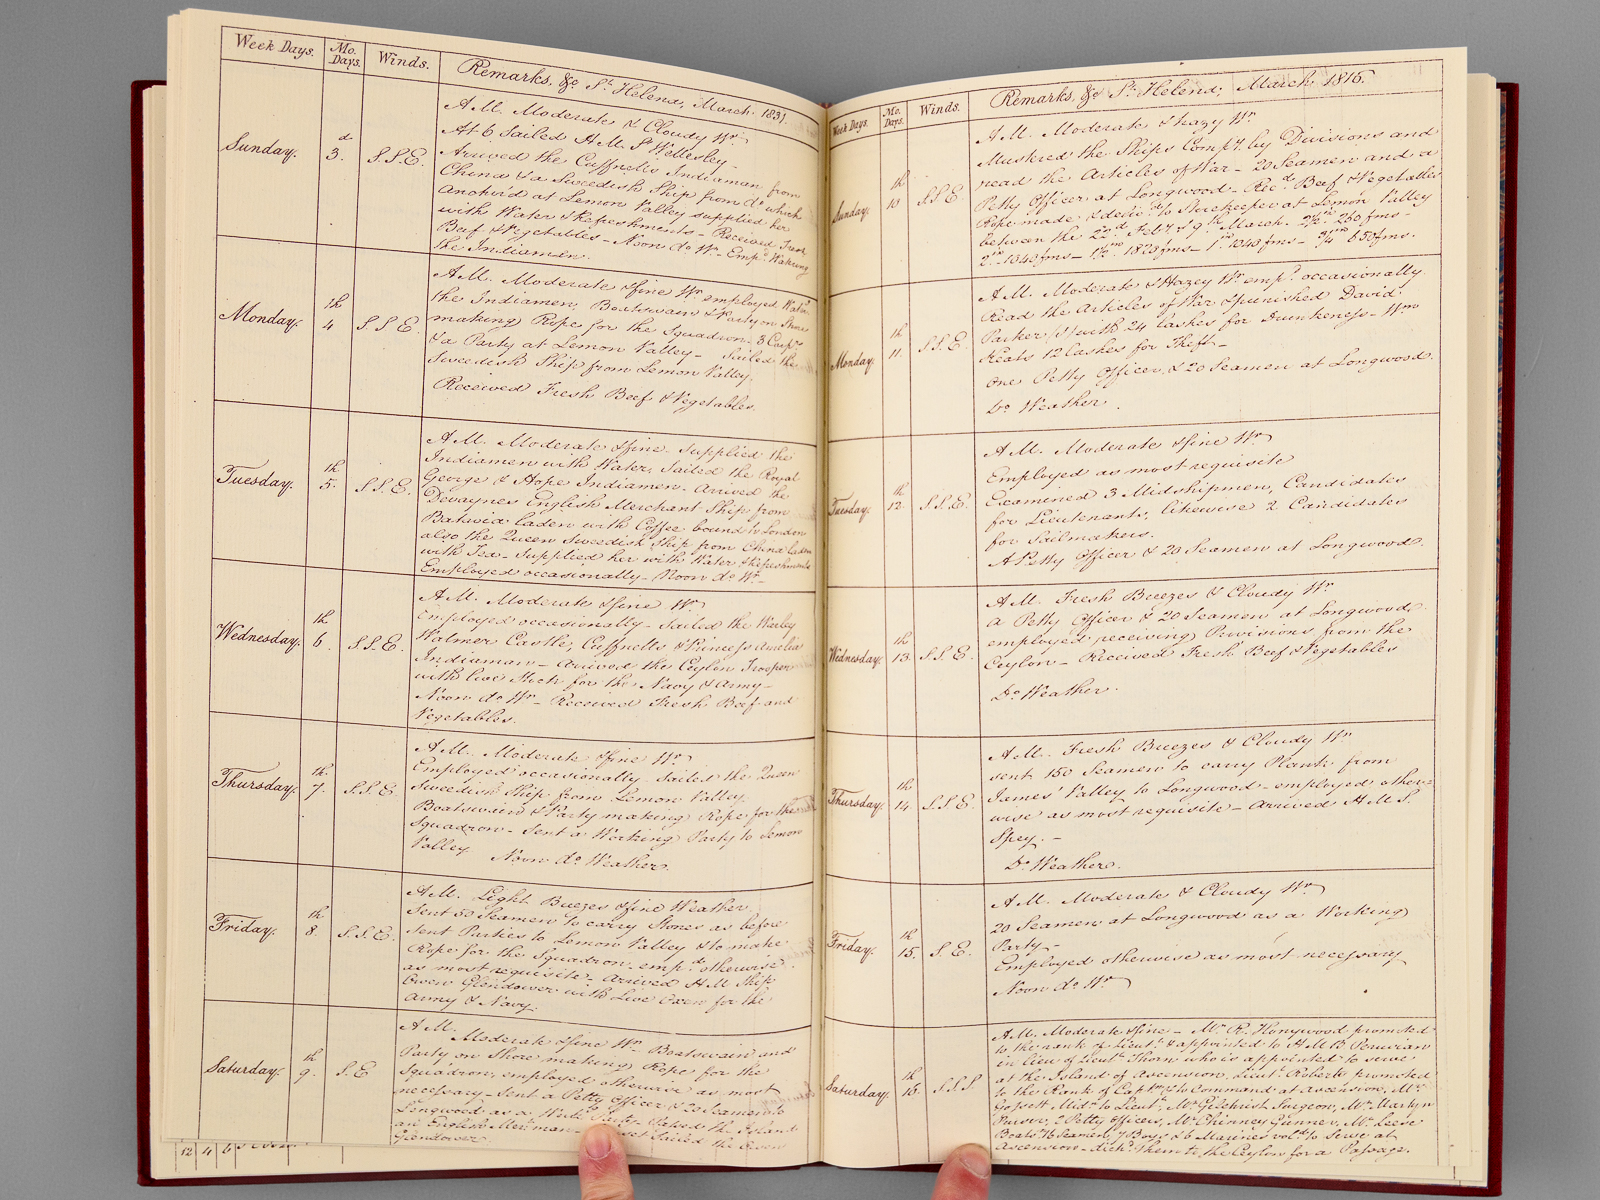 Week Days. Mo. Days. Winds. Remarks, &c St. Helena, March 1831.
Sunday. 3.d S.S.E.
A.M. Moderate & Cloudy Wr.
At 6 Sailed H.M. S. Wellesley
Arrived the Cuffnells Indiaman from
China & a Swedish Ship from do. which
Anchor'd at Lemon Valley supplied her
with Water & Refreshments - Received Fresh
Beef & Vegetables - Noon do Wr. - Emp.d Watering
the Indiamen.
Monday. 4th S.S.E.
A.M. Moderate & fine Wr employed Waterg
the Indiamen Boatswain & Party on Shore
making Rope for the Squadron - 3 Carprs
& a Party at Lemon Valley - Sailed the
Swedish Ship from Lemon Valley.
Received Fresh Beef & Vegetables.
Tuesday. 5th S.S.E.
A.M. Moderate & fine - Supplied the
Indiamen with Water, Sailed the Royal
George & Hope Indiamen - Arrived the
Devaynes English Merchant Ship from
Batavia laden with Coffee bound to London
also the Queen Swedish Ship from China laden
with Tea - Supplied her with Water & Refreshments
Employed occasionally - Noon do Wr -
Wednesday. 6th S.S.E.
A.M. Moderate & fine Wr
Employed occasionally - Sailed the Warley
Walmer Castle, Cuffnells & Princess Amelia
Indiaman - Arrived the Ceylon Trooper
with live Stock for the Navy & Army -
Noon do Wr - Received Fresh Beef and
Vegetables.
Thursday. 7th S.S.E.
A.M. Moderate & fine Wr
Employed occasionally - Sailed the Queen
Swedish Ship from Lemon Valley.
Boatswain & Party making Rope for the
Squadron - Sent a Working Party to Lemon
Valley Noon do Weather.
Friday. 8th S.S.E.
A.M. Light Breezes & fine Weather.
Sent 50 Seamen to carry Stones as before
Sent Parties to Lemon Valley & to make
Rope for the Squadron - emp.d otherwise
as most requisite - Arrived H.M Ship
Owen Glendower with Live Oxen for the
Army & Navy.
Saturday. 9th S.E
A.M. Moderate & fine Wr. Boatswain and
Party on Shore making Rope for the
Squadron, employed otherwise as most
necessary - Sent a Petty Officer & 20 Seamen to
Longwood as a Workg Party - Sailed the Island
an English Mer.man - Sailed the Owen
Glendower.
12 4 6
Week Days. Mo. Days. Winds. Remarks, &c St. Helena, March 1816.
Sunday. 10th S.S.E.
A.M. Moderate & hazy Wr.
Mustred the Ships Compy. by Divisions and
read the Articles of War - 20 Seamen and a
Petty Officer at Longwood - Rec.d Beef & Vegetables
Rope made & deliv.d to Storekeeper at Lemon Valley
between the 22d Feby & 9th March. 2½in 250 fms -
2in 1040 fms - 1½in 1823 fms - 1in 1040 fms - ¾in 650 fms.
Monday. 11th S.S.E.
A.M. Moderate & Hazey Wr emp.d occasionally
Read the Articles of War & punished David
Parker (S) with 24 lashes for Drunkeness - Wm
Keats 12 lashes for Theft -
One Petty Officer & 20 Seamen at Longwood.
Do Weather.
Tuesday. 12th S.S.E.
A.M. Moderate & fine Wr
Employed as most requisite
Examined 3 Midshipmen, Candidates
for Lieutenants, likewise 2 Candidates
for Sailmakers.
A Petty Officer & 20 Seamen at Longwood.
Wednesday. 13th S.S.E.
A.M. Fresh Breezes & Cloudy Wr
a Petty Officer & 20 Seamen at Longwood
employed receiving Provisions from the
Ceylon - Received Fresh Beef & Vegetables
Do Weather.
Thursday. 14th S.S.E.
A.M. Fresh Breezes & Cloudy Wr
sent 150 Seamen to carry Plank from
James' Valley to Longwood - employed other=
wise as most requisite - Arrived H M S.
Spey. -
Do Weather.
Friday. 15th S.E.
A.M. Moderate & Cloudy Wr
20 Seamen at Longwood as a Working
Party -
Employed otherwise as most necessary
Noon do Wr
Saturday. 16th S.S.S
A.M. Moderate & fine - Mr. R. Honywood promoted
to the rank of Lieut. & appointed to H M B Peruvian
in lieu of Lieut. Thorn who is appointed to serve
at the Island of Ascension, Lieut. Roberts promoted
to the Rank of Captn. & to Command at Ascension, Mr.
Gossett Midn. to Lieut. Mr. Gilchrist Surgeon, Mr. Martyn
Purser, 2 Petty Officers, Mr. Chinney Gunner, Mr. Leese
Boatsn. 16 Seamen, 7 Boys & 6 Marines vol.d to serve at
Ascension - disch.d them to the Ceylon for a Passage.